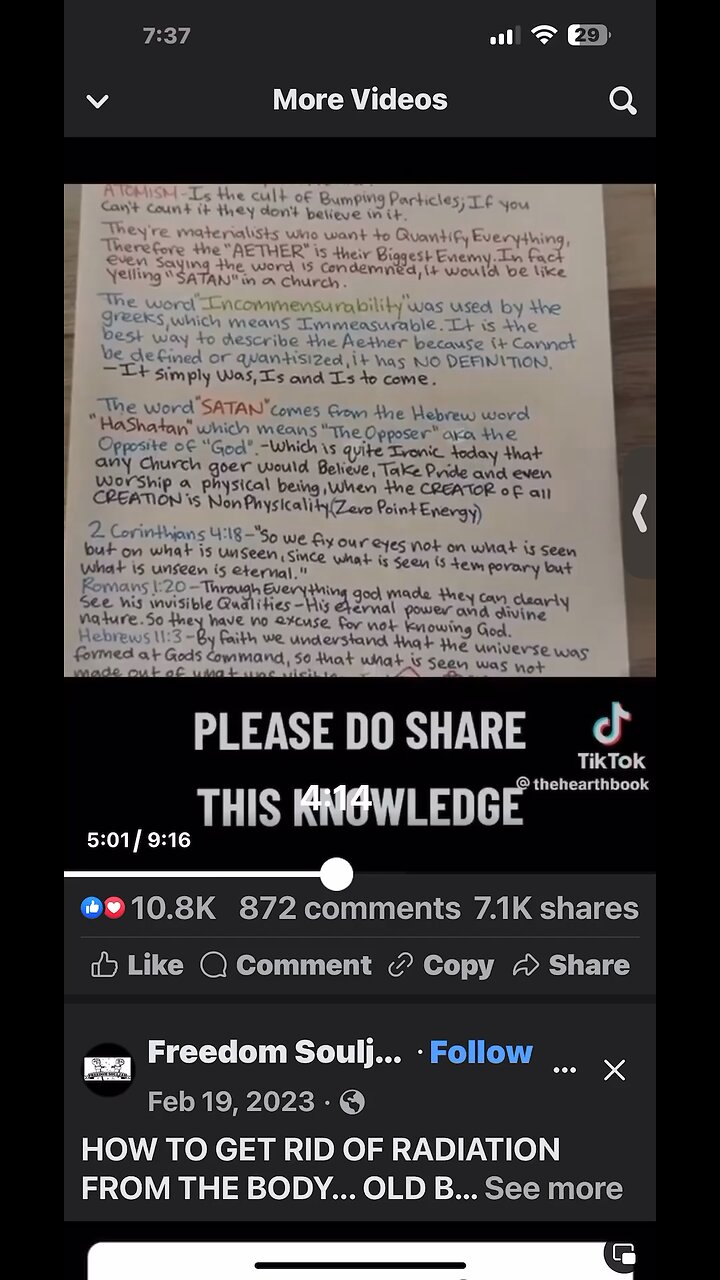 7:37
29
More Videos
ATOMISM-Is the cult of Bumping Particles; If you
can't count it they don't believe in it.
They're materialists who want to Quantify Everything,
Therefore the "AETHER" is their Biggest Enemy. In fact
even saying the word is condemned, it would be like
yelling "SATAN" in a church.
The word "Incommensurability" was used by the
greeks, which means Immeasurable. It is the
best way to describe the Aether because it Cannot
be defined or quantisized, it has NO DEFINITION.
-It simply Was, Is and Is to come.
The word "SATAN" comes from the Hebrew word
"HaShatan" which means "The Opposer" aka the
Opposite of "God".-Which is quite Ironic today that
any Church goer would Believe, Take Pride and even
worship a physical being, When the CREATOR of all
CREATION is NonPhysicality (Zero Point Energy)
2 Corinthians 4:18-"So we fix our eyes not on what is seen
but on what is unseen, since what is seen is temporary but
what is unseen is eternal."
Romans 1:20-Through Everything god made they can clearly
see his invisible Qualities-His eternal power and divine
nature. So they have no excuse for not knowing God.
Hebrews 11:3-By faith we understand that the universe was
formed at Gods command, so that what is seen was not
made out of what was visible
PLEASE DO SHARE
TikTok
@thehearthbook
THIS KNOWLEDGE
4:14
5:01 / 9:16
10.8K 872 comments 7.1K shares
Like Comment Copy Share
Freedom Soulj... · Follow
Feb 19, 2023 ·
HOW TO GET RID OF RADIATION
FROM THE BODY... OLD B... See more